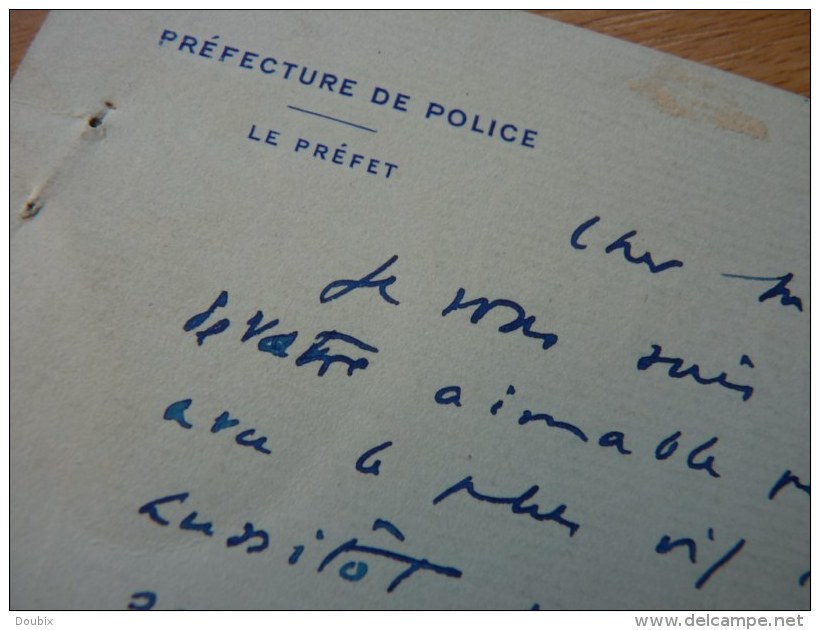 PRÉFECTURE DE POLICE
LE PRÉFET
Cher
Je vous suis
de votre aimable
avec le plus vif
aussitôt
Doubix
www.delcampe.net